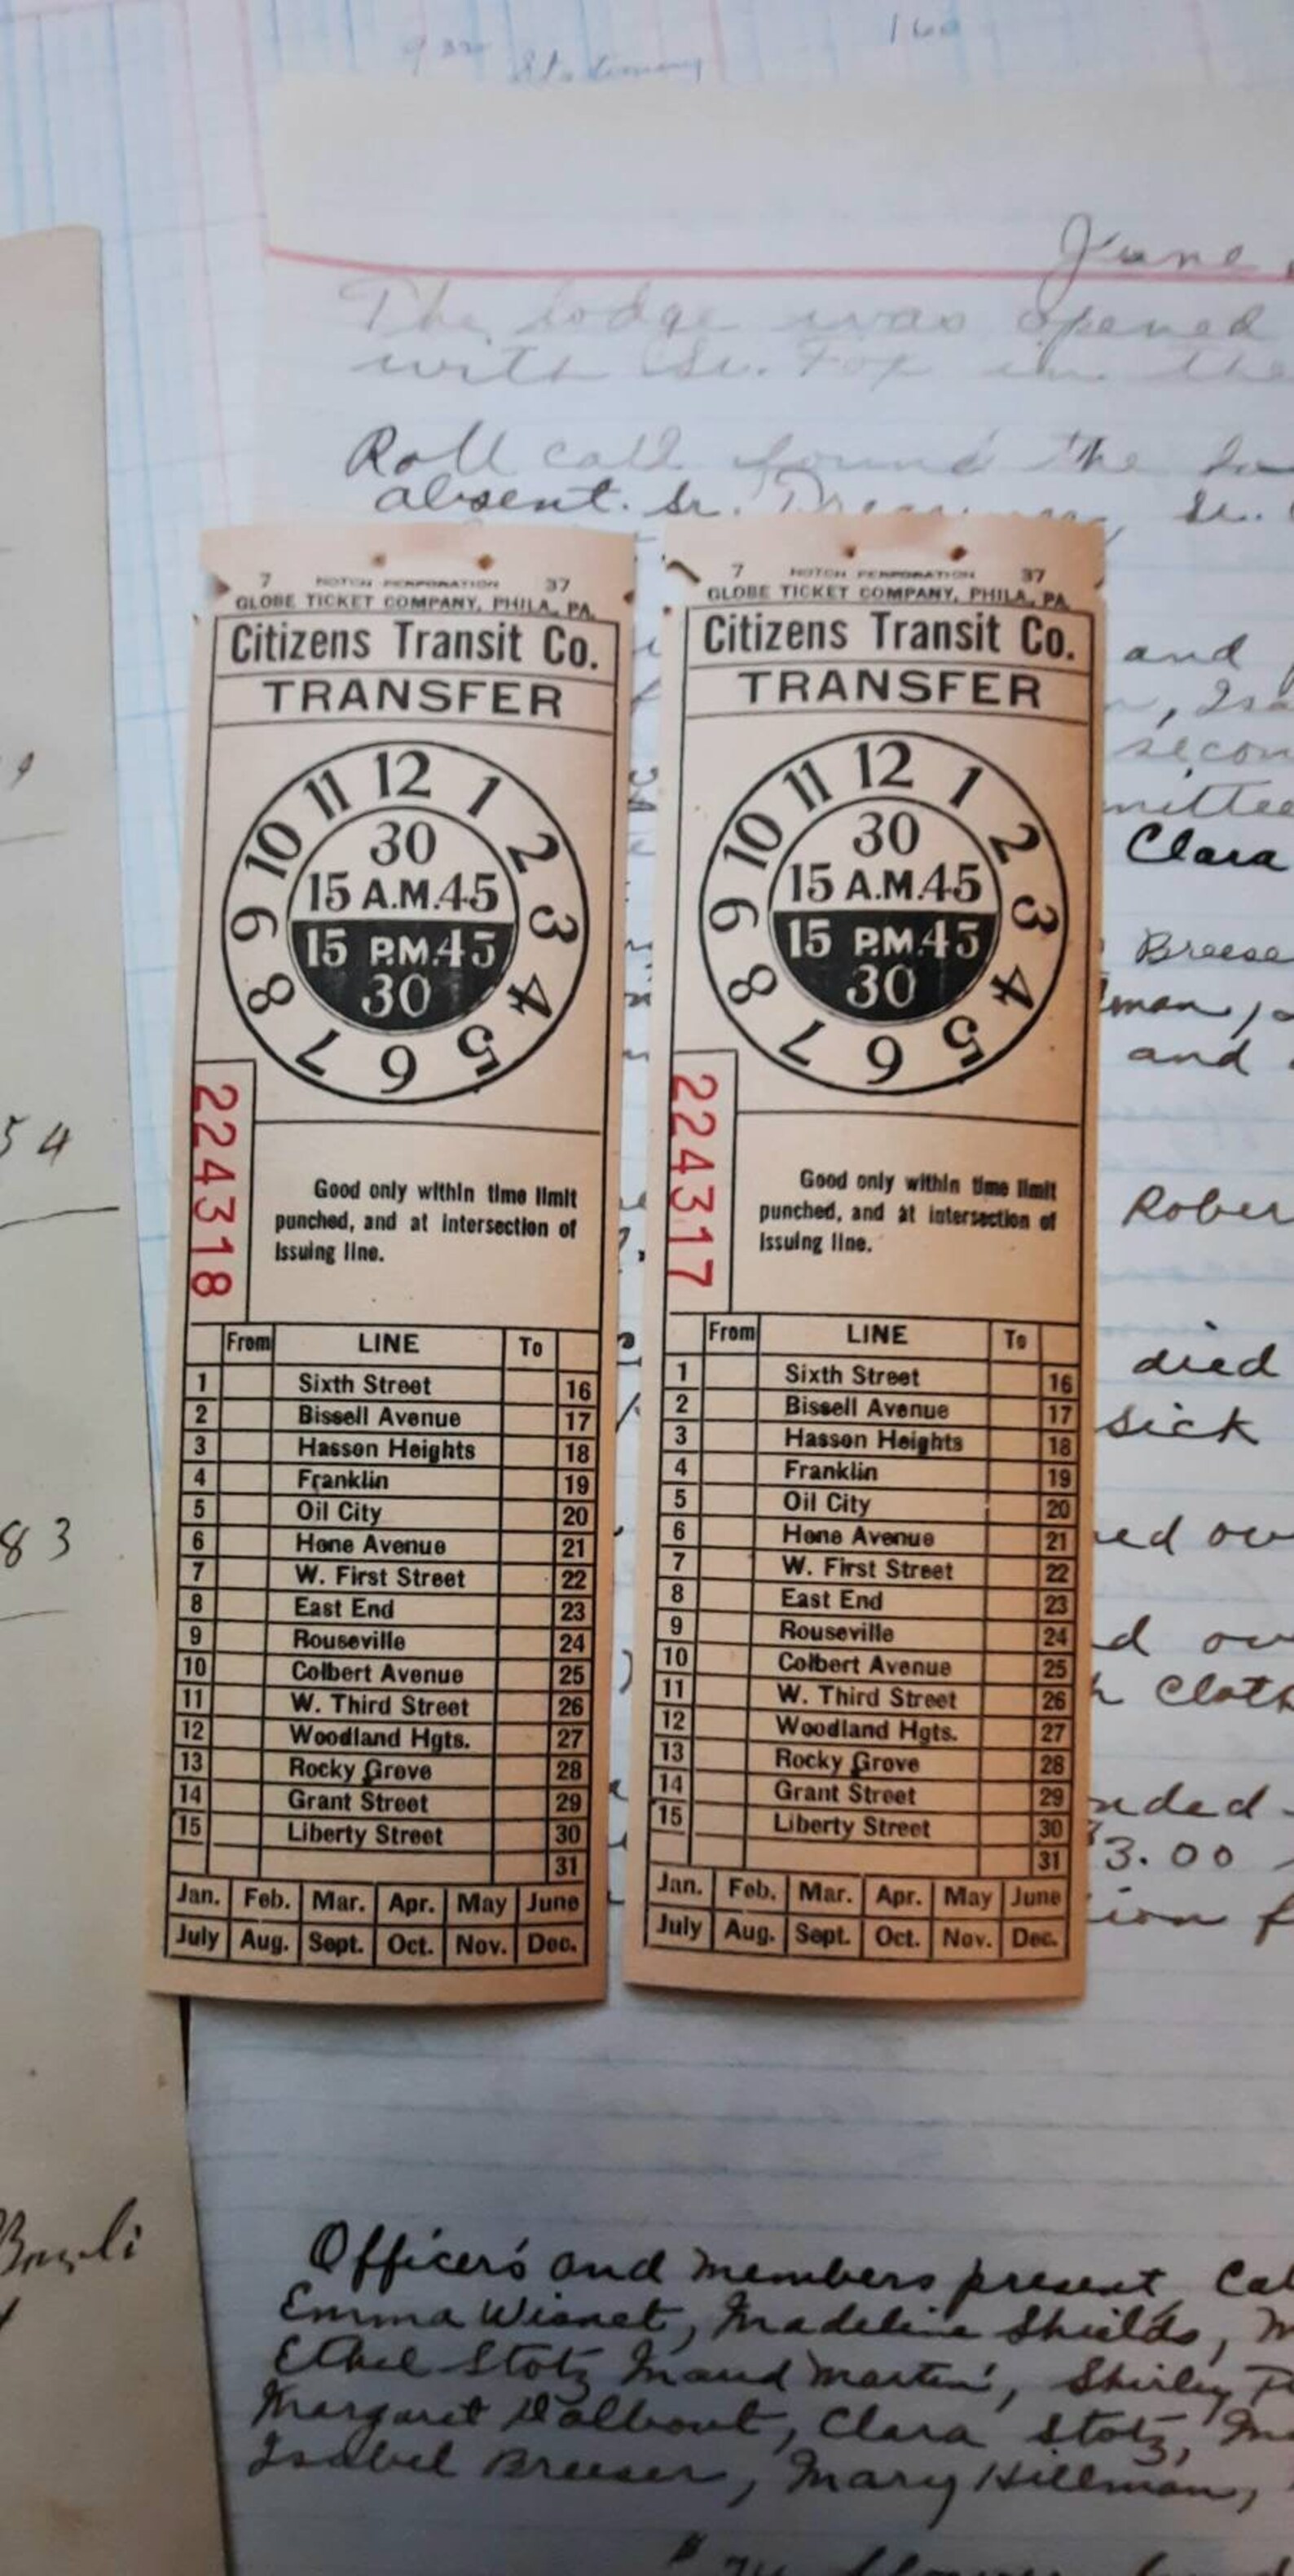 160
Stationery
June
The lodge was opened
with Sr. Fox in the
Roll call found the
absent. Sr.
7 NOTCH PERFORATION 37
GLOBE TICKET COMPANY, PHILA., PA.
Citizens Transit Co.
TRANSFER
12
1
2
3
4
5
6
7
8
9
10
11
30
15 A.M. 45
15 P.M. 45
30
224318
Good only within time limit
punched, and at intersection of
issuing line.
From LINE To
1 Sixth Street 16
2 Bissell Avenue 17
3 Hasson Heights 18
4 Franklin 19
5 Oil City 20
6 Hone Avenue 21
7 W. First Street 22
8 East End 23
9 Rouseville 24
10 Colbert Avenue 25
11 W. Third Street 26
12 Woodland Hgts. 27
13 Rocky Grove 28
14 Grant Street 29
15 Liberty Street 30
31
Jan. Feb. Mar. Apr. May June
July Aug. Sept. Oct. Nov. Dec.
7 NOTCH PERFORATION 37
GLOBE TICKET COMPANY, PHILA., PA.
Citizens Transit Co.
TRANSFER
12
1
2
3
4
5
6
7
8
9
10
11
30
15 A.M. 45
15 P.M. 45
30
224317
Good only within time limit
punched, and at intersection of
issuing line.
From LINE To
1 Sixth Street 16
2 Bissell Avenue 17
3 Hasson Heights 18
4 Franklin 19
5 Oil City 20
6 Hone Avenue 21
7 W. First Street 22
8 East End 23
9 Rouseville 24
10 Colbert Avenue 25
11 W. Third Street 26
12 Woodland Hgts. 27
13 Rocky Grove 28
14 Grant Street 29
15 Liberty Street 30
31
Jan. Feb. Mar. Apr. May June
July Aug. Sept. Oct. Nov. Dec.
and
Clara
Breese
and
died
sick
3.00
54
83
Officers and members present,
Emma Wisnet, Madeline Shields,
Ethel Stotz Maud Martin, Shirley
Margaret Clara Stotz,
Isabel Mary Hillman,